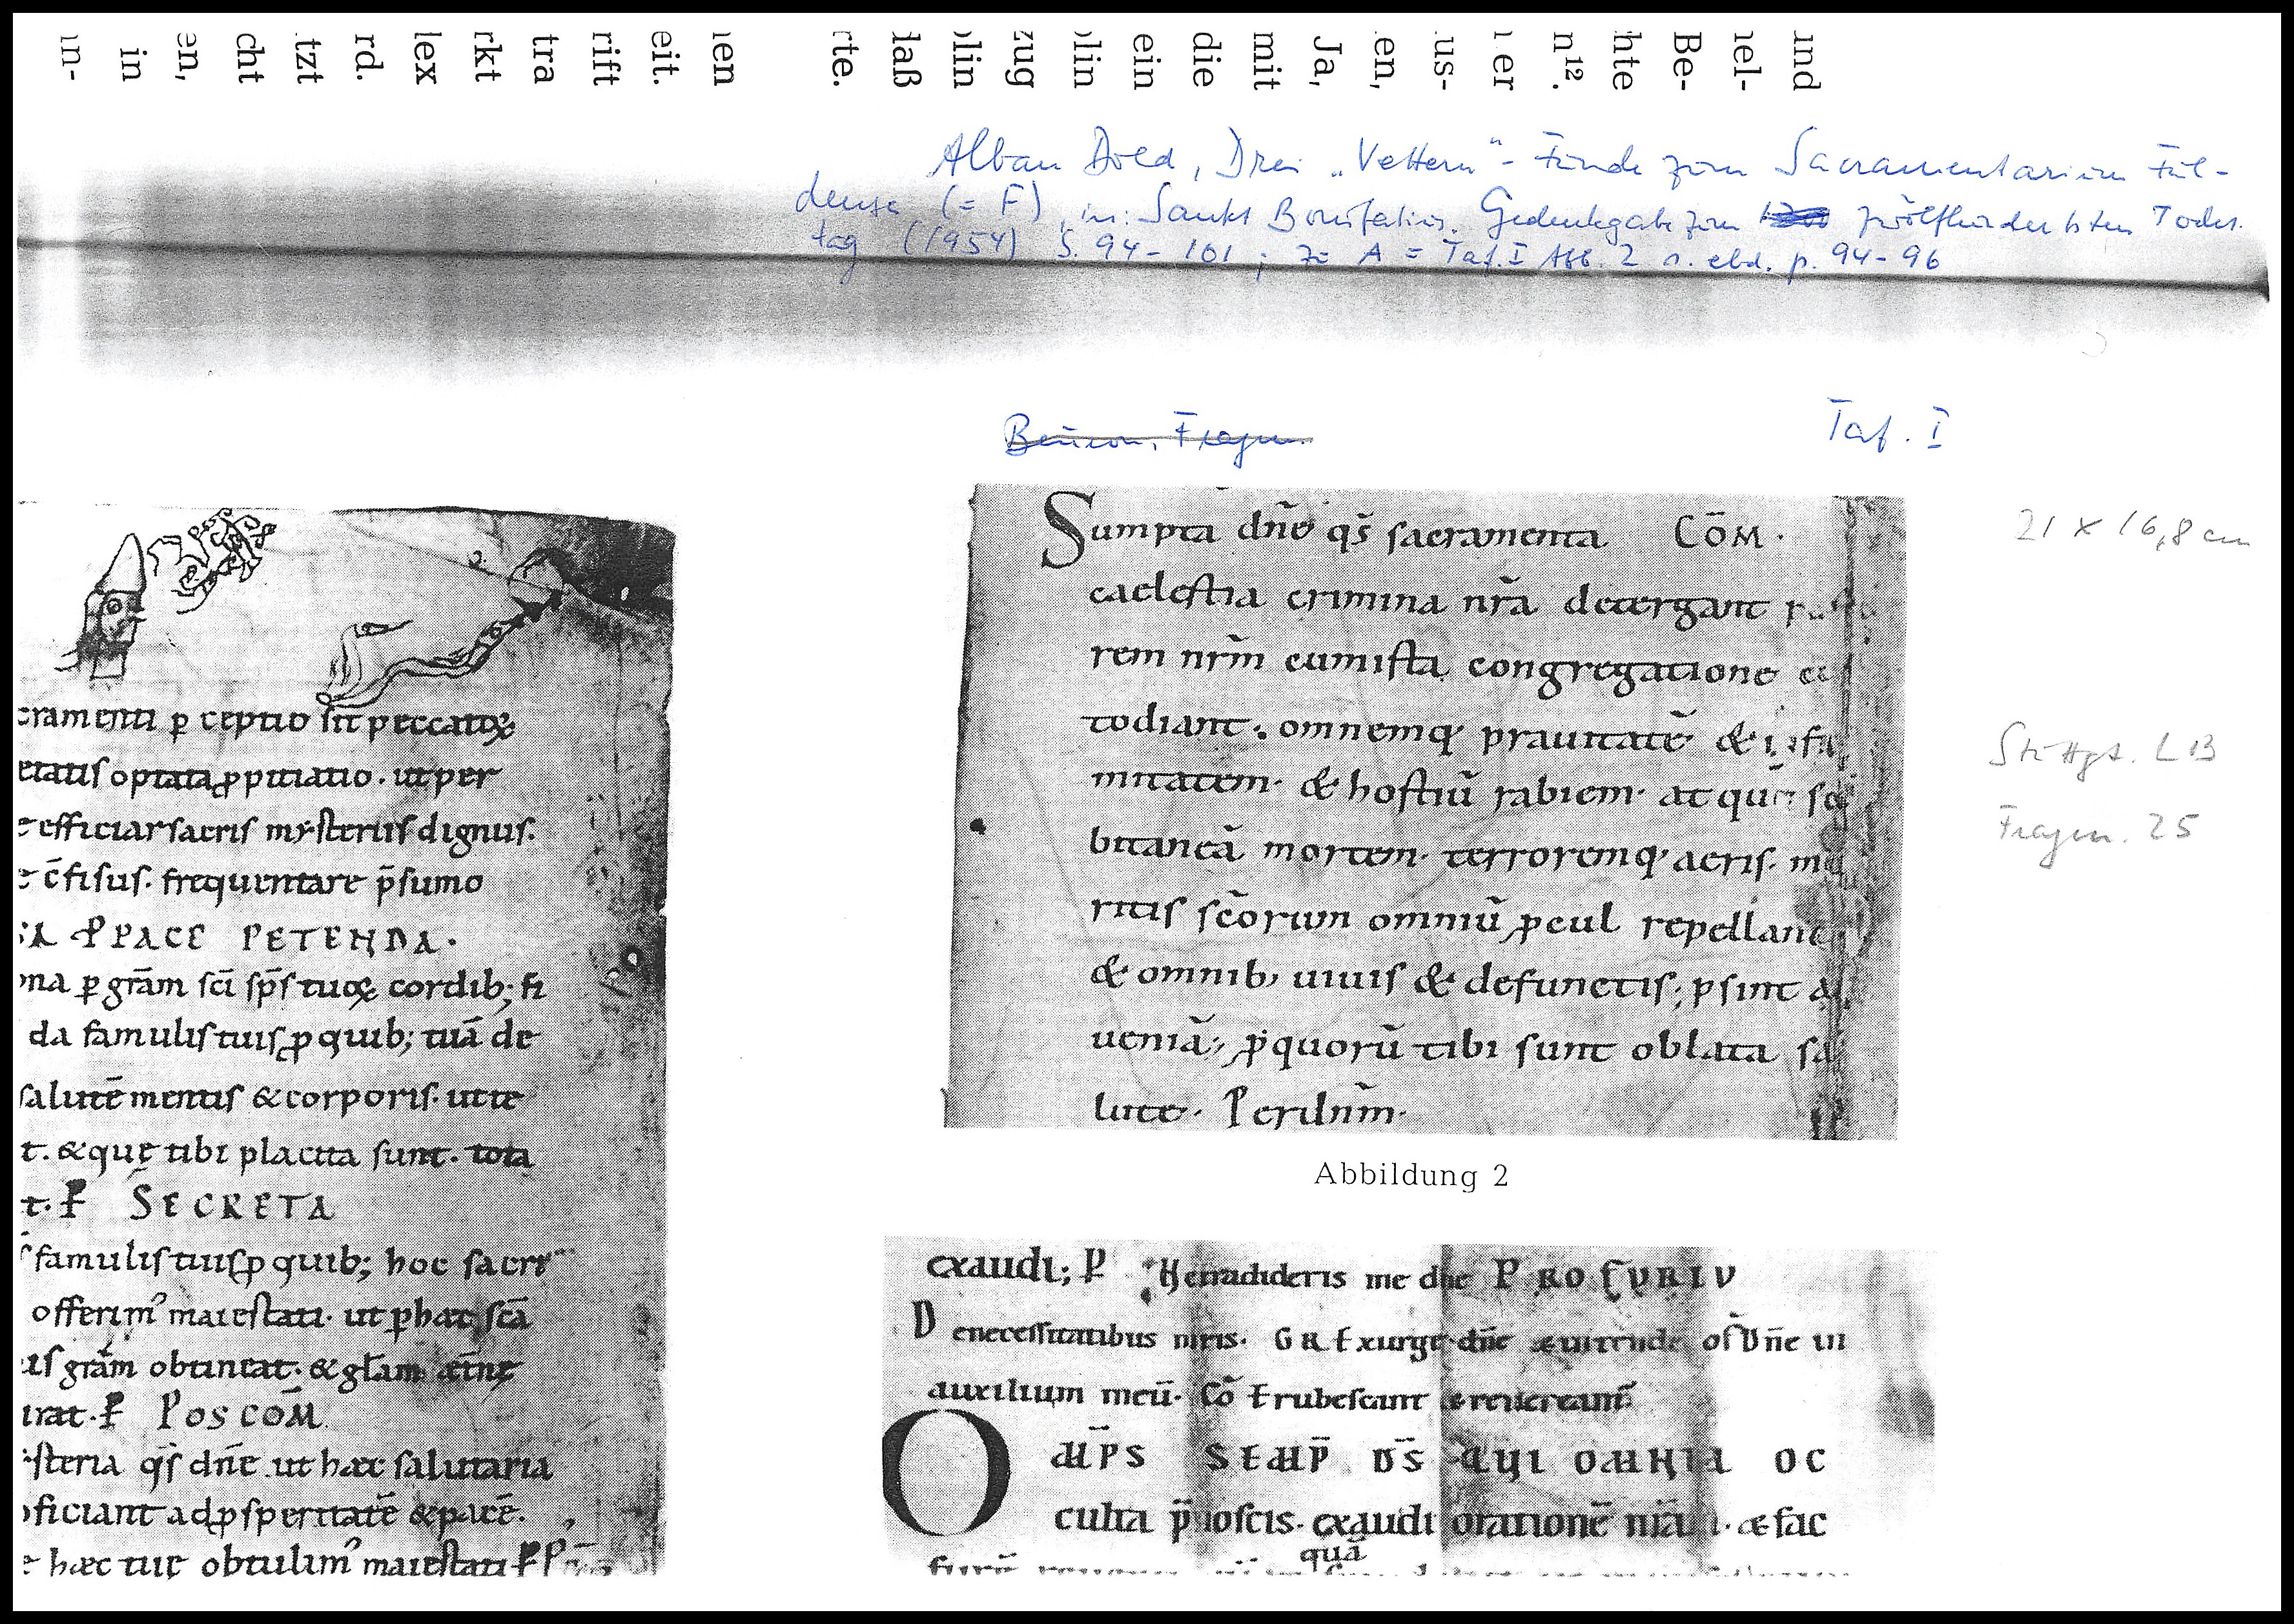 und
nel-
Be-
hte
n¹².
ı er
us-
en,
Ja,
mit
die
ein
olin
zug
olin
laß
rte.
ıen
eit.
rift
tra
rkt
lex
rd.
tzt
cht
en,
in
ın-
Alban Dold, Drei „Vettern"-Funde zum Sacramentarium Ful-
dense (= F), in: Sankt Bonifatius. Gedenkgabe zum zwölfhundertsten Todes-
tag (1954) S. 94-101; zu A = Taf. I Abb. 2 s. ebd. p. 94-96
Beuron, Fragm.
Taf. I
21 x 16,8 cm
Stuttgt. LB
Fragm. 25
cramenti ꝑceptio sit peccatoꝝ
etatis optata ꝓpitiatio. ut per
efficiar sacris mysteriis dignus.
c̄fisus. frequentare p̄sumo
SA ꝒPACE PETENDA.
ona ꝑ grām sc̄i sp̄s tuoꝝ cordib; fi
da famulis tuis ꝓ quib; tuā de
salutē mentis & corporis. ut te
t. & quę tibi placita sunt. tota
t. Ꝑ SECRETA
famulis tuis ꝓ quib; hoc sacri
offerim' maiestati. ut ꝑ hæc sc̄a
us grām obtineat. & glām ætnę
irat. Ꝑ POSCOM̄
steria q̄s dn̄e ut hæc salutaria
oficiant ad ꝓsperitatē & pacē.
hæc tuę obtulim' maiestati Ꝑ
Sumpta dn̄e q̄s sacramenta CŌM.
caelestia crimina nr̄a detergant
rem nr̄m cumista congregatione
todiant. omnemq; prauitatē &
mitatem. & hostiū rabiem. atque
bitaneā mortem. terroremq; aeris. me
ritis sc̄orum omniū ꝓcul repellant
& omnib; uiuis & defunctis; ꝓsint
ueniā, ꝓ quorū tibi sunt oblata sa
lute. Perdnm̄.
Abbildung 2
exaudi; Ꝑ Netradideris me dn̄e PRO FURTU
De necessitatibus nr̄is. GR Exurge dn̄e & intende of Dn̄e in
auxilium meū. Cō Erubescant & reuereant̄
OMP̄S SEMP̄ D̄S QUI OMNIA OC
culta p̄noscis. exaudi orationē nr̄ā. & fac
quā